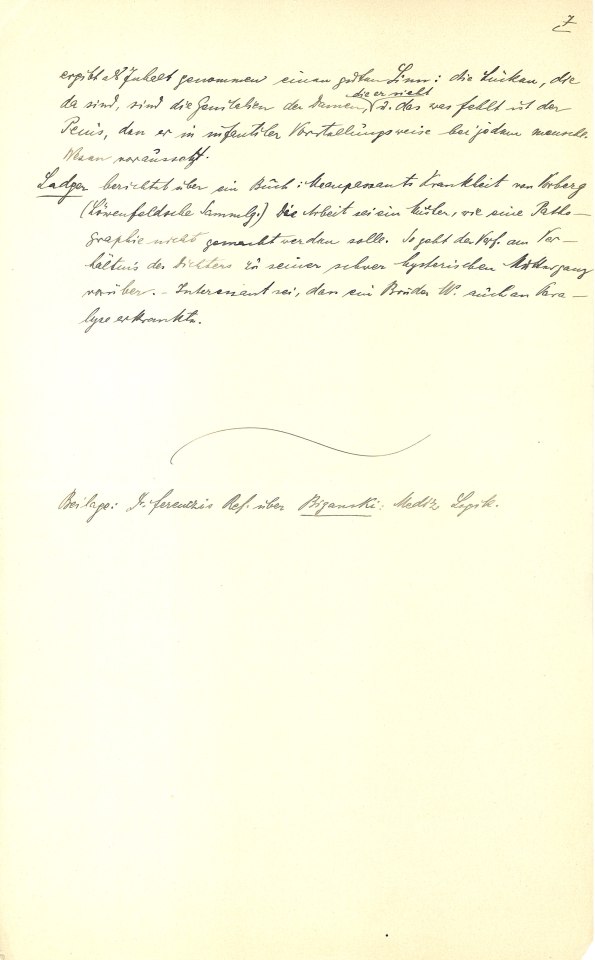 7
ergibt als Inhalt genommen einen guten Sinn: die Lücken, die
die er sieht
da sind, sind die Genitalien der Damen, u. das was fehlt ist der
Penis, den er in infantiler Vorstellungsweise bei jedem menschl.
Wesen voraussetzt.
berichtet über ein Buch: Maupassants Krankheit von Vorberg
(Löwenfeldsche Sammlg.) Die Arbeit sei ein Muster, wie eine Patho-
graphie nicht gemacht werden solle. So geht der Verf. am Ver-
hältnis des Dichters zu seiner schwer hysterischen Mutter ganz
vorüber. - Interessant sei, dass ein Bruder M. auch an Para-
lyse erkrankte.
Beilage: Dr. Ferenczis Ref. über Biganski: Mediz. Logik.